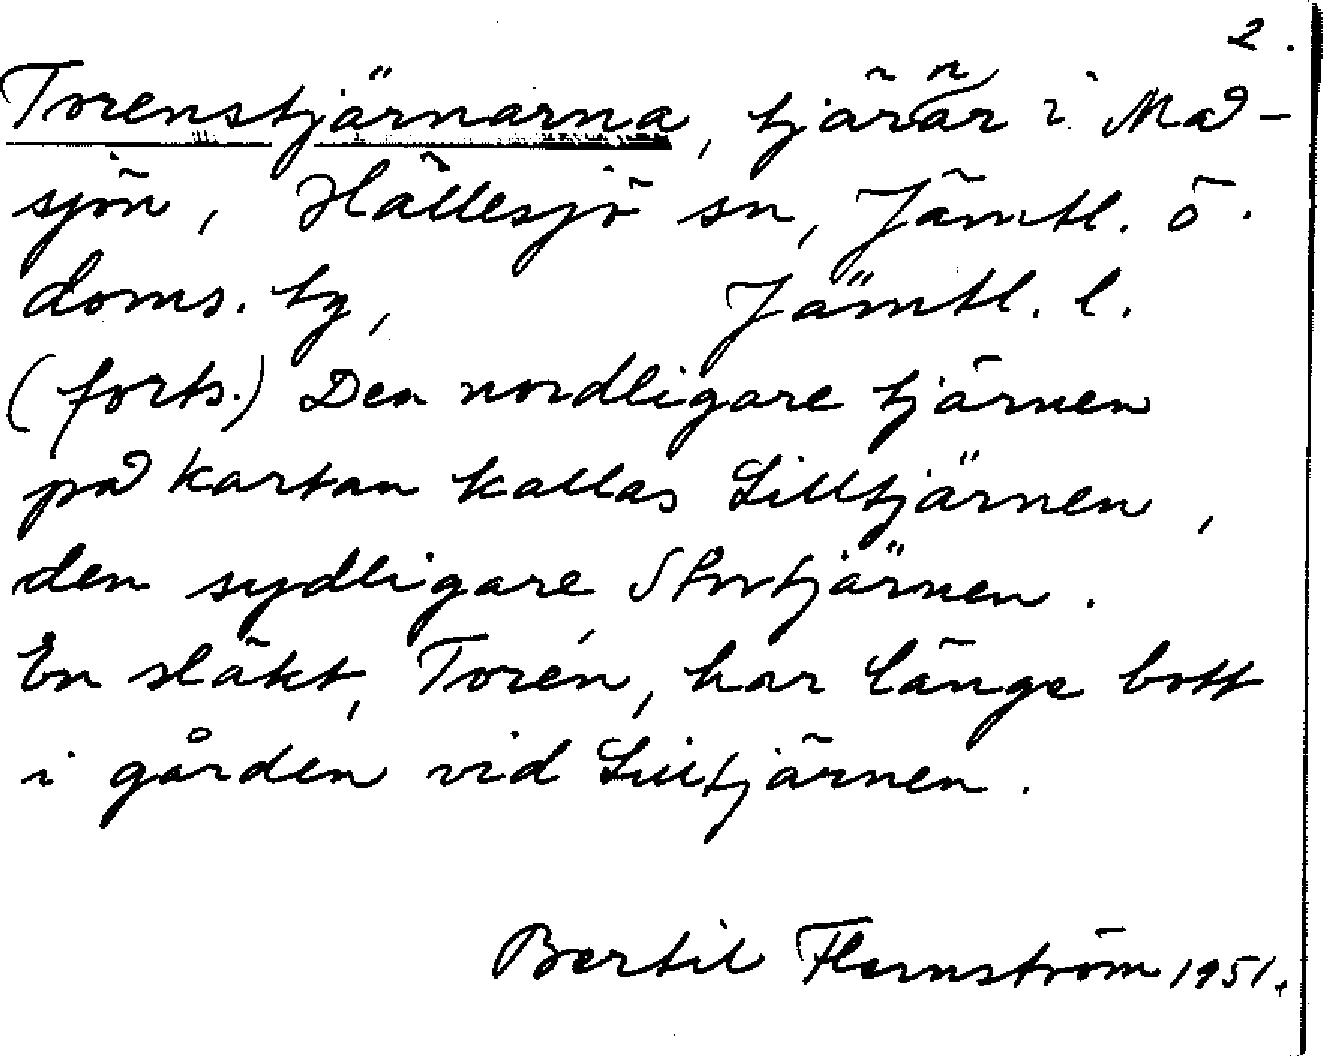 2.
Torenstjärnarna, tjärnar i Må-
sjön, Hällesjö sn, Jämtl. ö.
doms. tg, Jämtl. l.
(forts.) Den nordligare tjärnen
på kartan kallas Lilltjärnen,
den sydligare Stortjärnen.
En släkt, Torén, har länge bott
i gården vid Lilltjärnen.
Bertil Flemström 1951.